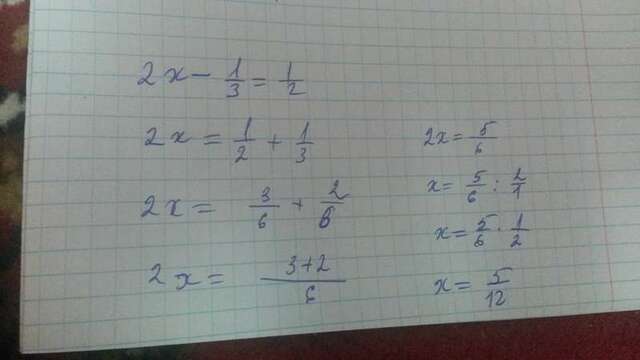 2x - 1/3 = 1/2
2x = 1/2 + 1/3
2x = 3/6 + 2/6
2x = 3+2/6
2x = 5/6
x = 5/6 : 2/1
x = 5/6 · 1/2
x = 5/12